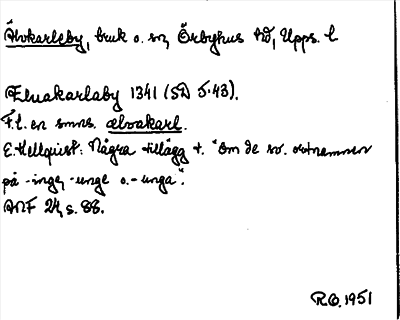 Älvkarleby, bruk o. sn, Örbyhus hd, Upps. l
Eluakarlaby 1341 (SD 5:43).
F.l. en smns. ælvakarl.
E. Hellquist: Några tillägg t. "Om de sv. ortnamnen
på -inge, -unge o. -unga".
ANF 24, s. 88.
R.O. 1951